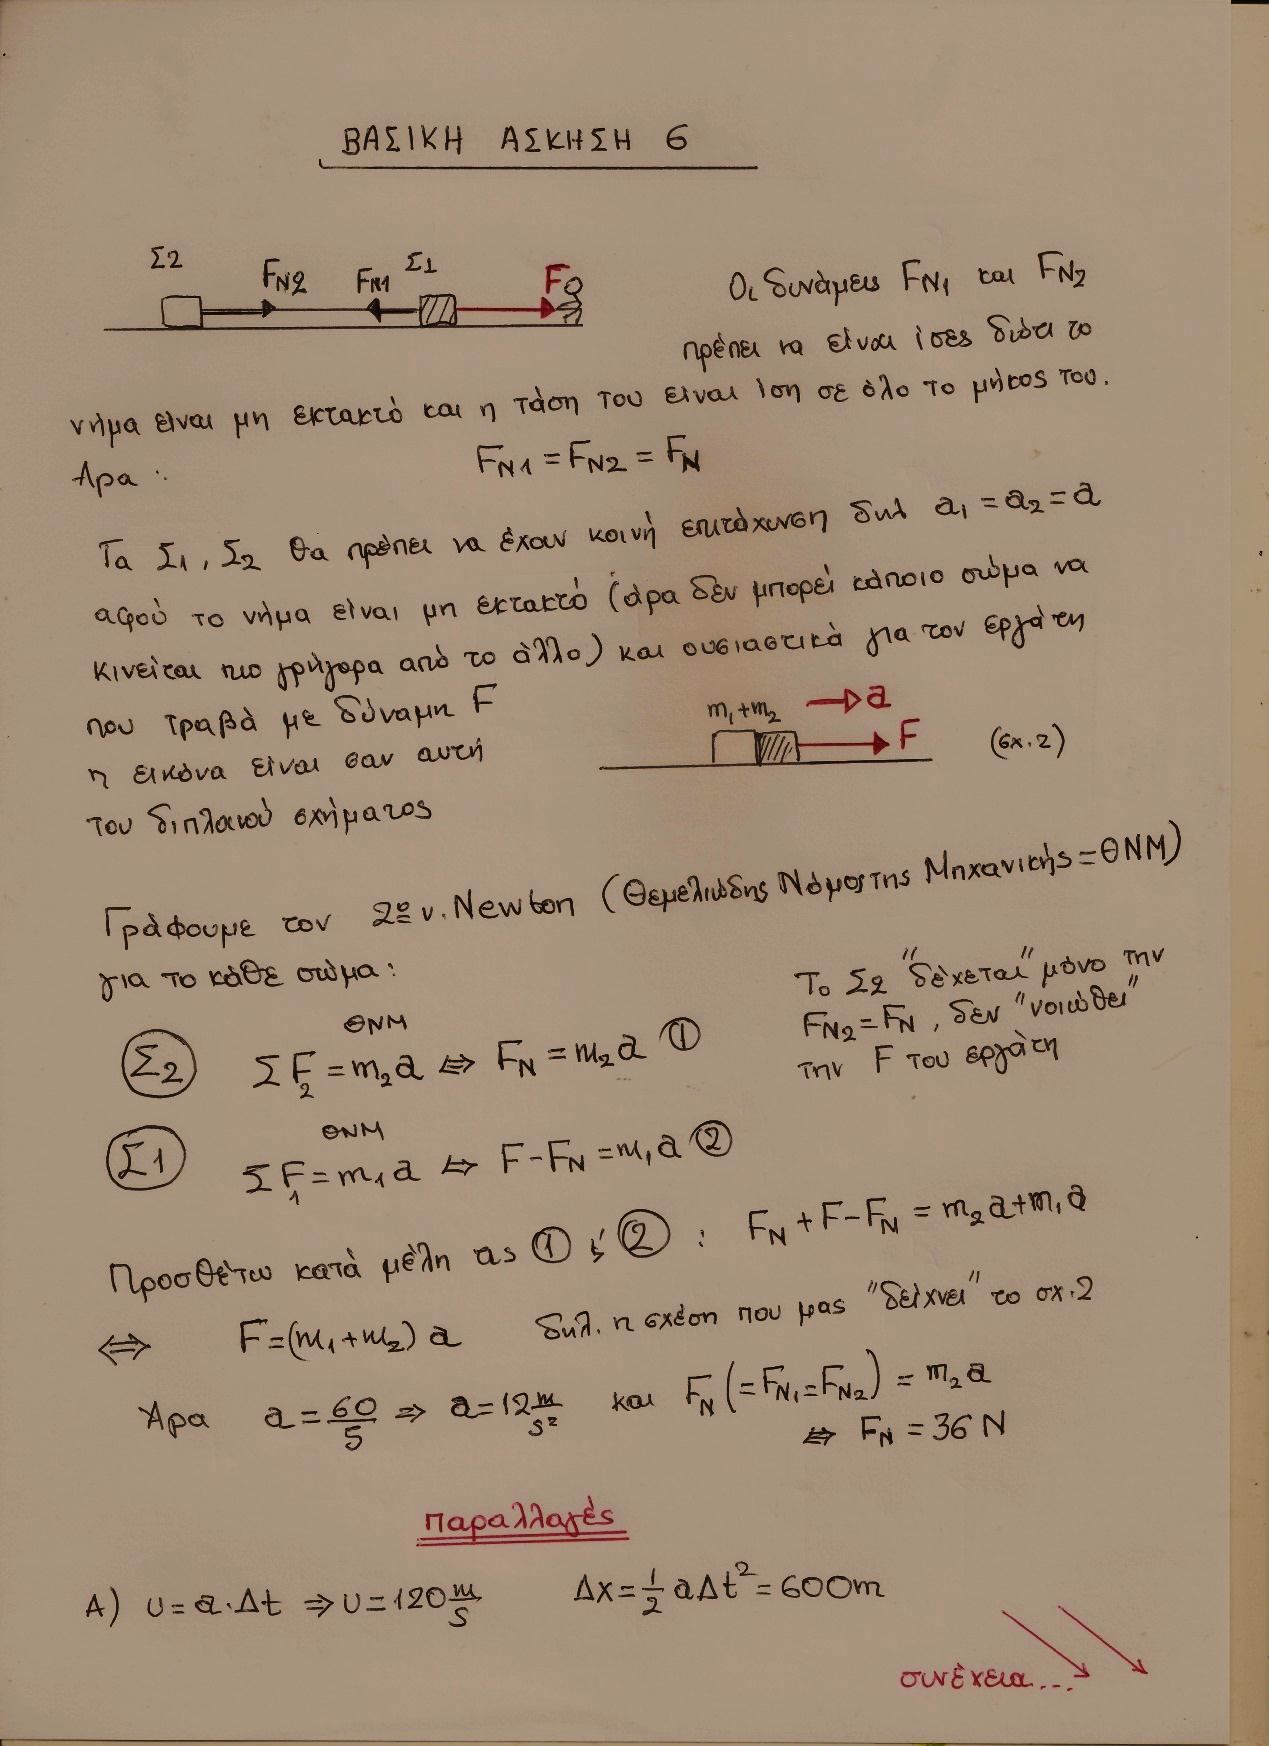 ΒΑΣΙΚΗ ΑΣΚΗΣΗ 6
Σ2 FN2 FN1 Σ1 F
Οι δυνάμεις FN1 και FN2
πρέπει να είναι ίσες διότι το
νήμα είναι μη εκτακτό και η τάση του είναι ίση σε όλο το μήκος του.
Άρα : FN1 = FN2 = FN
Τα Σ1, Σ2 θα πρέπει να έχουν κοινή επιτάχυνση δηλ a1 = a2 = a
αφού το νήμα είναι μη εκτακτό (άρα δεν μπορεί κάποιο σώμα να
κινείται πιο γρήγορα από το άλλο) και ουσιαστικά για τον εργάτη
που τραβά με δύναμη F
η εικόνα είναι σαν αυτή
του διπλανού σχήματος
m1+m2 a
F (σχ.2)
Γράφουμε τον 2º ν. Newton (Θεμελιώδης Νόμος της Μηχανικής = ΘΝΜ)
για το κάθε σώμα:
Το Σ2 "δέχεται" μόνο την
FN2 = FN, δεν "νοιώθει"
την F του εργάτη
ΘΝΜ
Σ2 ΣF2 = m2a ⇔ FN = m2a ①
ΘΝΜ
Σ1 ΣF1 = m1a ⇔ F - FN = m1a ②
Προσθέτω κατά μέλη τις ① & ② : FN + F - FN = m2a + m1a
⇔ F = (m1+m2) a δηλ. η σχέση που μας "δείχνει" το σχ.2
Άρα a = 60/5 ⇒ a = 12 m/s² και FN (=FN1=FN2) = m2a
⇔ FN = 36 N
Παραλλαγές
Α) υ = a·Δt ⇒ υ = 120 m/s Δx = 1/2 aΔt² = 600m
συνέχεια....